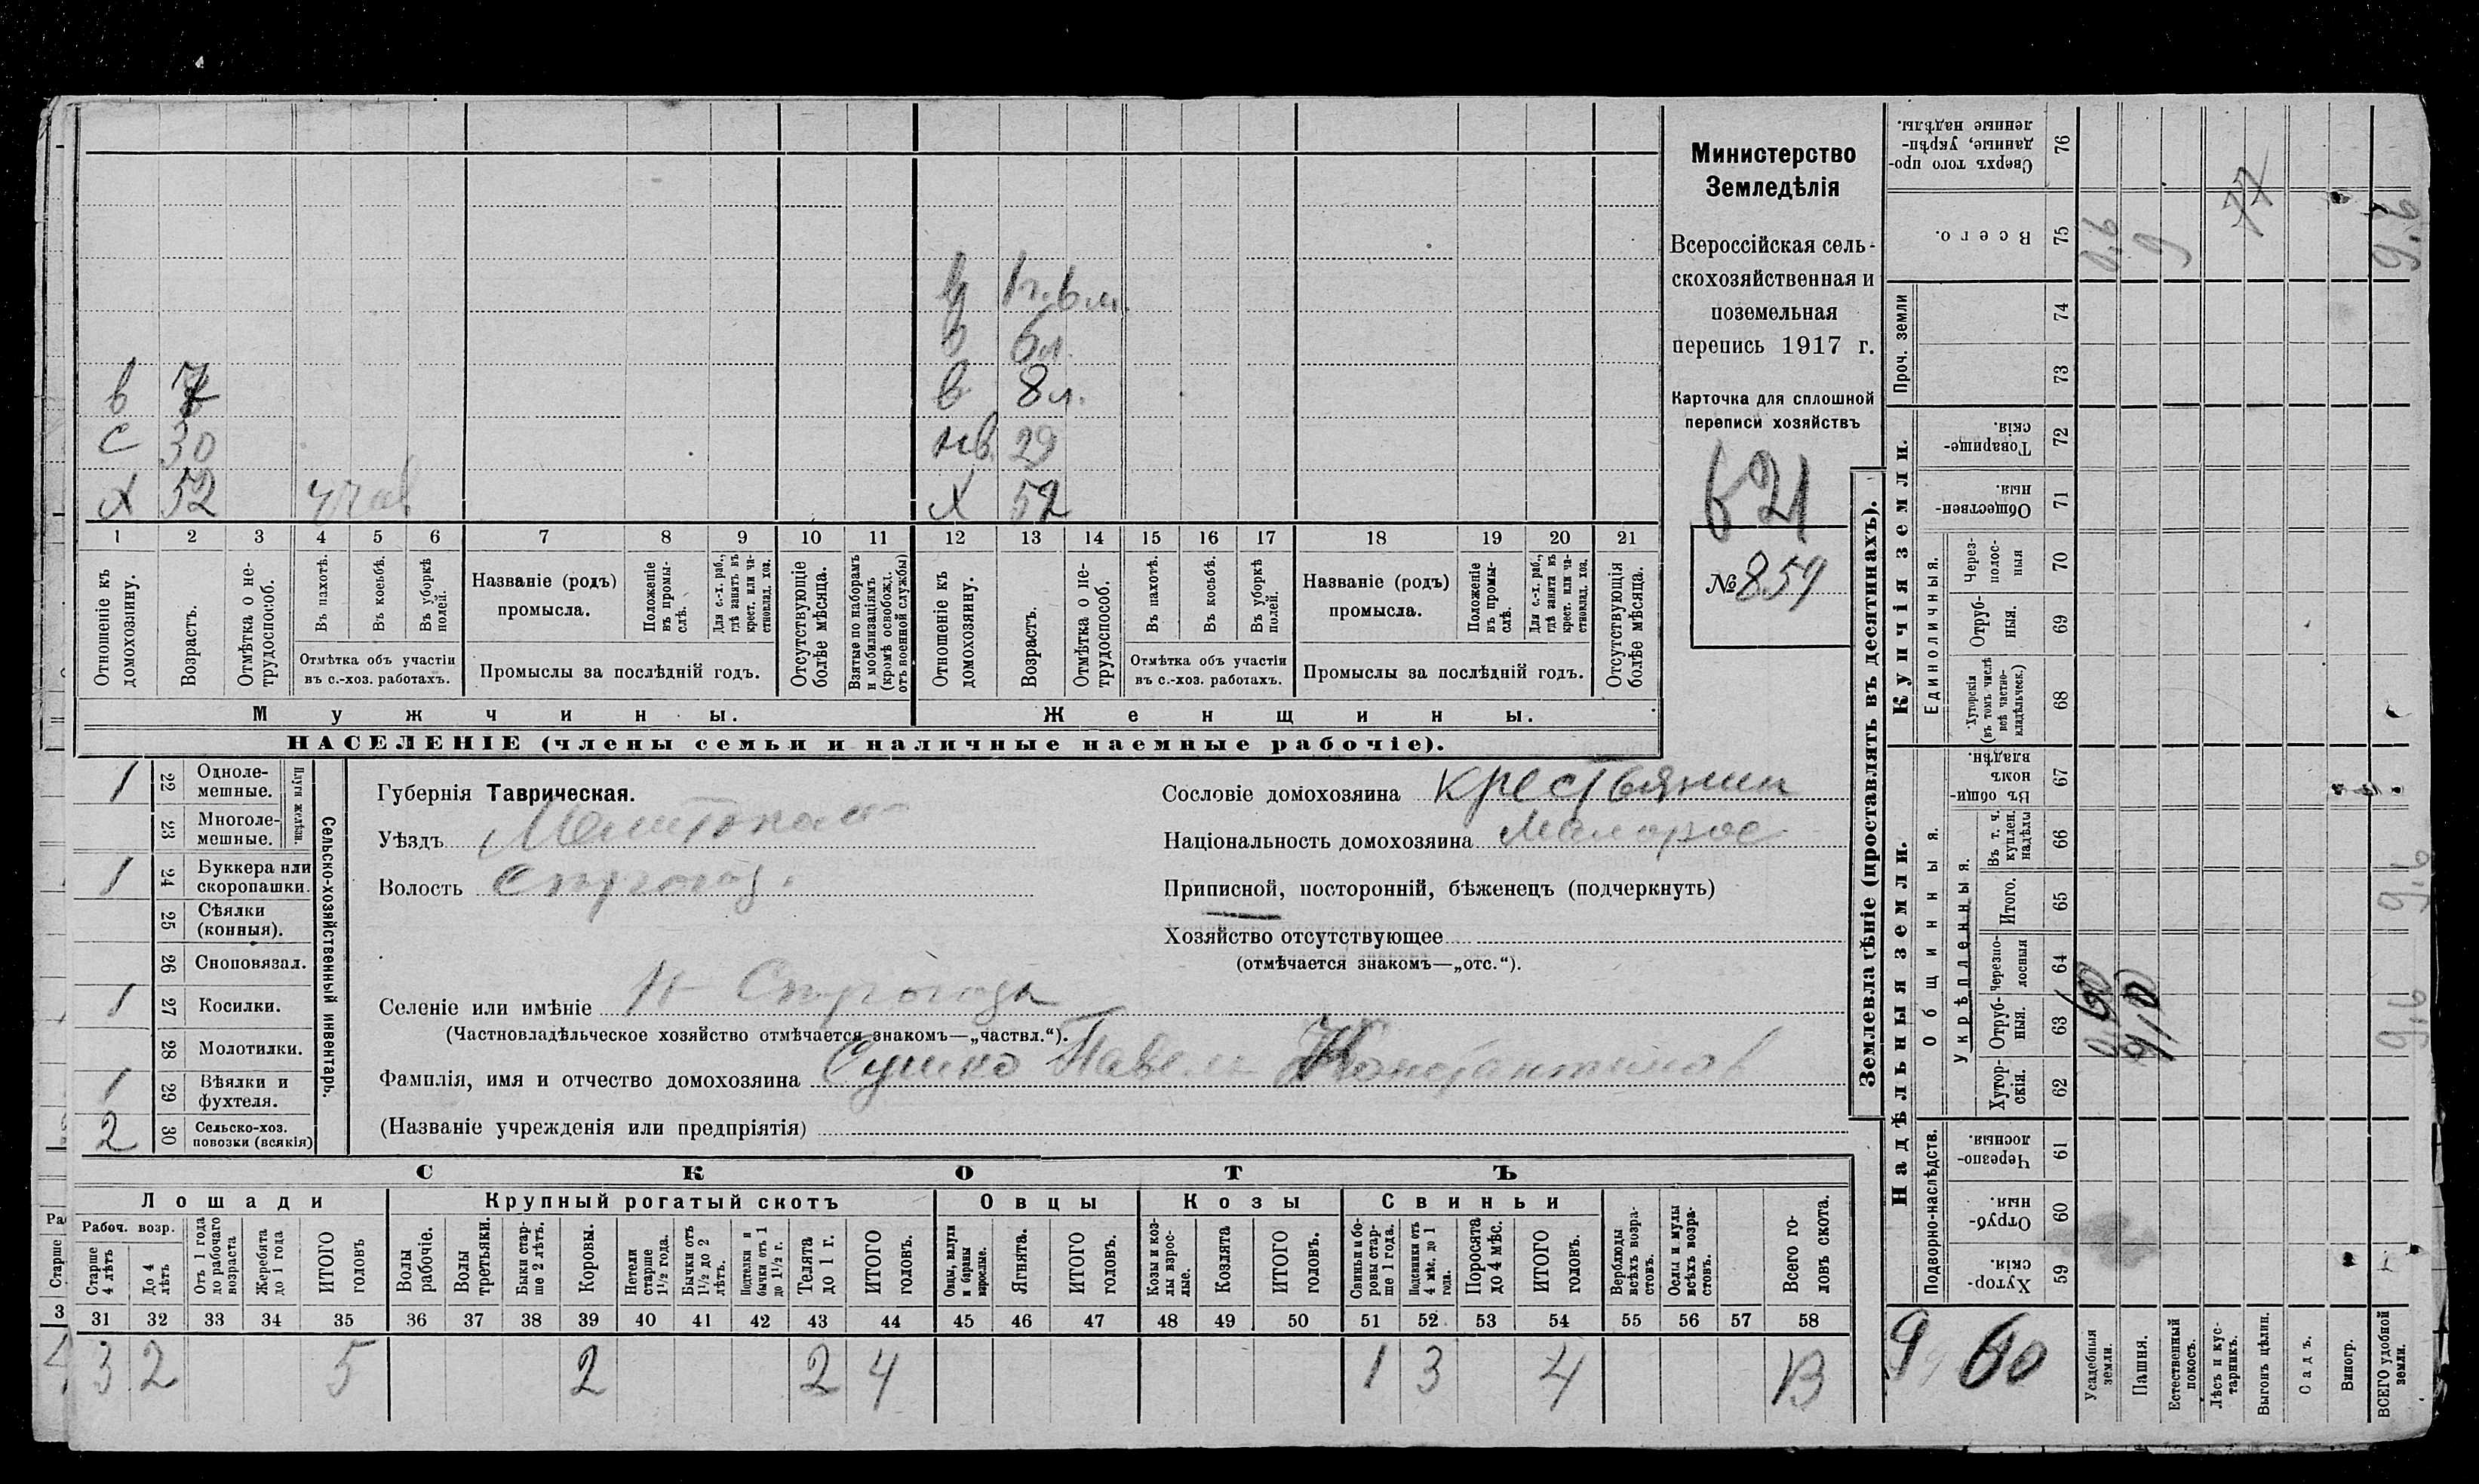 в 7
с 30
х 52
в 1 г. 6 м.
в 6 л.
в 8 л.
нв. 29
х 52
1 2 3 4 5 6 7 8 9 10 11 12 13 14 15 16 17 18 19 20 21
Отношеніе къ домохозяину.
Возрастъ.
Отмѣтка о нетрудоспособ.
Въ пахотѣ.
Въ косьбѣ.
Въ уборкѣ полей.
Отмѣтка объ участіи
въ с.-хоз. работахъ.
Названіе (родъ)
промысла.
Положеніе въ промыслѣ.
Для с.-х. раб., гдѣ занятъ въ крест. или частновлад. хоз.
Промыслы за послѣдній годъ.
Отсутствующіе болѣе мѣсяца.
Взятые по наборамъ и мобилизаціямъ (кромѣ освобожд. отъ военной службы)
Отношеніе къ домохозяину.
Возрастъ.
Отмѣтка о нетрудоспособ.
Въ пахотѣ.
Въ косьбѣ.
Въ уборкѣ полей.
Отмѣтка объ участіи
въ с.-хоз. работахъ.
Названіе (родъ)
промысла.
Положеніе въ промыслѣ.
Для с.-х. раб., гдѣ занята въ крест. или частновлад. хоз.
Промыслы за послѣдній годъ.
Отсутствующія болѣе мѣсяца.
Мужчины.
Женщины.
НАСЕЛЕНІЕ (члены семьи и наличные наемные рабочіе).
Министерство
Земледѣлія
Всероссійская сель-
скохозяйственная и
поземельная
перепись 1917 г.
Карточка для сплошной
переписи хозяйствъ
621
№ 859
Сельско-хозяйственный инвентарь.
Плуги желѣзн.
1 22 Одноле-
мешные.
23 Многоле-
мешные.
1 24 Буккера или
скоропашки.
25 Сѣялки
(конныя).
26 Сноповязал.
1 27 Косилки.
28 Молотилки.
1 29 Вѣялки и
фухтеля.
2 30 Сельско-хоз.
повозки (всякія)
Губернія Таврическая.
Уѣздъ
Волость
Селеніе или имѣніе
(Частновладѣльческое хозяйство отмѣчается знакомъ—„частвл.“).
Фамилія, имя и отчество домохозяина Сушко Павелъ Константинов
(Названіе учрежденія или предпріятія)
Сословіе домохозяина крестьянин
Національность домохозяина Малорос
Приписной, посторонній, бѣженецъ (подчеркнуть)
Хозяйство отсутствующее
(отмѣчается знакомъ—„отс.“).
СКОТЪ
Лошади
Крупный рогатый скотъ
Овцы
Козы
Свиньи
Рабоч. возр.
Старше 4 лѣтъ
До 4 лѣтъ
Отъ 1 года до рабочаго возраста
Жеребята до 1 года
ИТОГО головъ
Волы рабочіе.
Волы третьяки.
Быки старше 2 лѣтъ.
Коровы.
Нетели старше 1½ года.
Бычки отъ 1½ до 2 лѣтъ.
Подтелки и бычки отъ 1 до 1½ г.
Телята до 1 г.
ИТОГО головъ.
Овцы, валухи и бараны взрослые.
Ягнята.
ИТОГО головъ.
Козы и козлы взрослые.
Козлята
ИТОГО головъ.
Свиньи и боровы старше 1 года.
Подсвинки отъ 4 мѣс. до 1 года.
Поросята до 4 мѣс.
ИТОГО головъ.
Верблюды всѣхъ возрастовъ.
Ослы и мулы всѣхъ возрастовъ.
Всего головъ скота.
31 32 33 34 35 36 37 38 39 40 41 42 43 44 45 46 47 48 49 50 51 52 53 54 55 56 57 58
3 2 5 2 2 4 1 3 4 13
Землевладѣніе (проставлять въ десятинахъ).
Купчія земли.
Проч. земли
Единоличныя.
Сверхъ того проданные, укрѣпленные надѣлы. 76
Всего. 75
74
73
Товарищескія. 72
Общественныя. 71
Черезполосныя 70
Отрубныя. 69
Хуторскія (въ томъ числѣ всѣ частновладѣльческ.) 68
Надѣльныя земли.
Общинныя.
Укрѣпленныя.
Въ общинномъ владѣн. 67
Въ т. ч. куплен. надѣлы 66
Итого. 65
Черезполосныя 64
Отрубныя. 63
Хуторскія. 62
Подворно-наслѣдств.
Черезполосныя. 61
Отрубныя. 60
Хуторскія. 59
Усадебныя земли.
Пашня.
Естественный покосъ.
Лѣсъ и кустарникъ.
Выгонъ цѣлин.
Садъ.
Виногр.
ВСЕГО удобной земли.
0,6
9
77
9,6
9,6
9,6
9 60